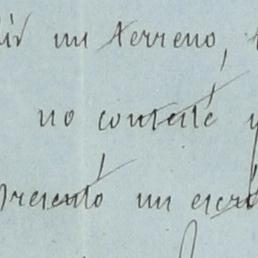 un terreno,
no contesté y
presentó un escri